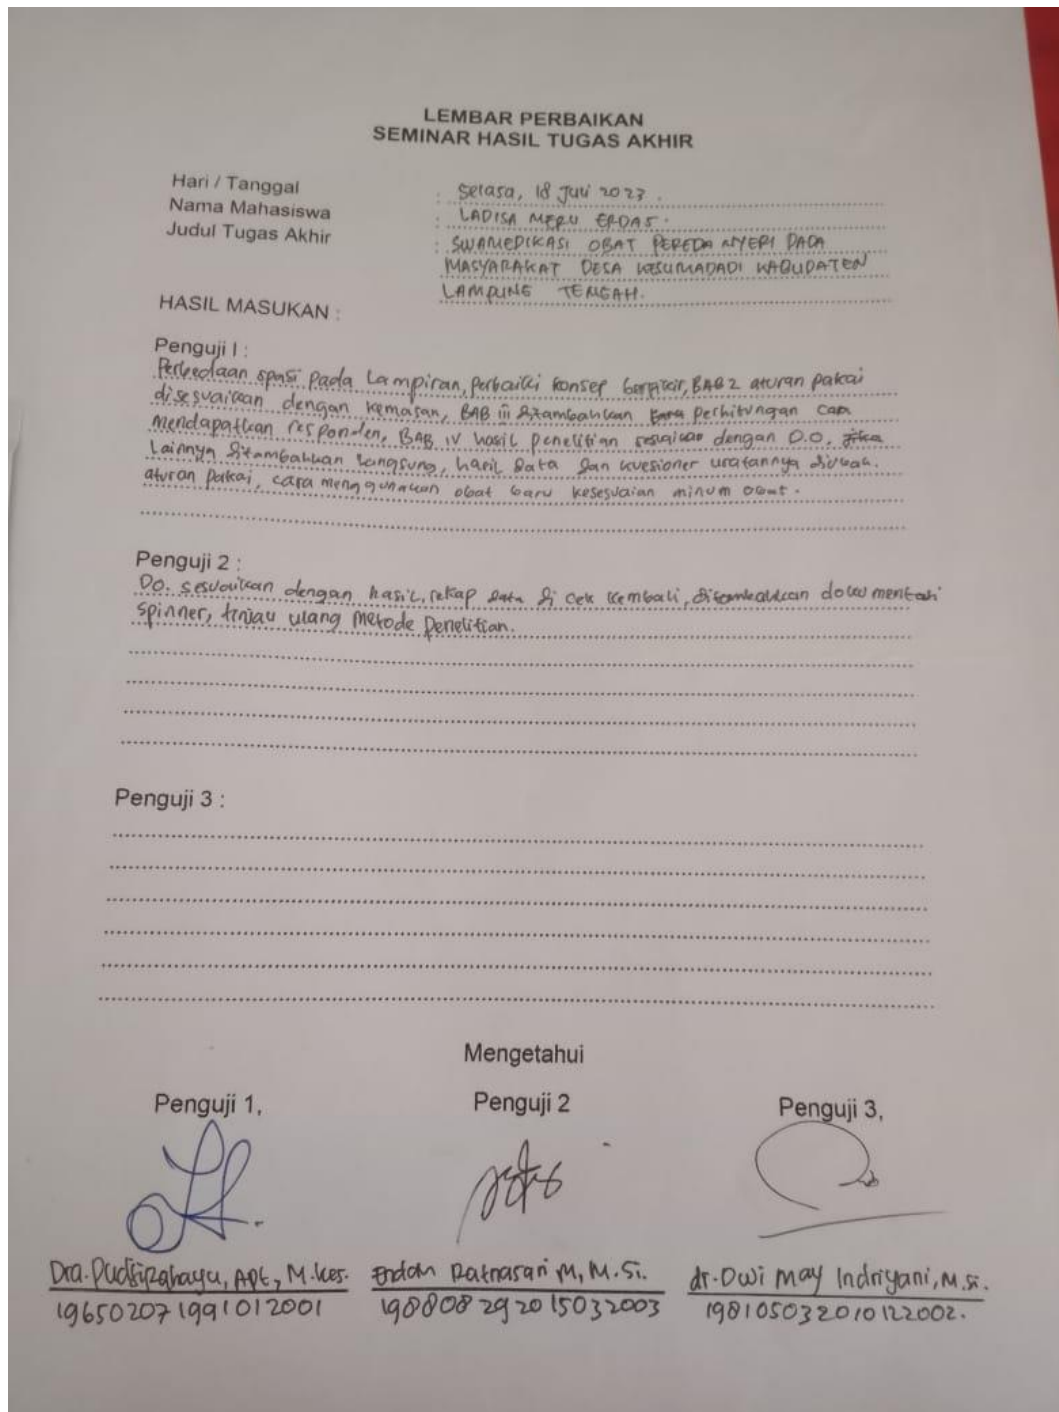 LEMBAR PERBAIKAN
SEMINAR HASIL TUGAS AKHIR
Hari / Tanggal : Selasa, 18 Juli 2023.
Nama Mahasiswa : LADISA MERU ERDAS.
Judul Tugas Akhir : SWAMEDIKASI OBAT PEREDA NYERI PADA
MASYARAKAT DESA KESUMADADI KABUPATEN
LAMPUNG TENGAH.
HASIL MASUKAN :
Penguji I :
Perbedaan spasi pada Lampiran, perbaiki konsep berpikir, BAB 2 aturan pakai
disesuaikan dengan kemasan, BAB iii ditambahkan perhitungan cara
mendapatkan responden, BAB IV hasil penelitian sesuaikan dengan D.O.
Lainnya ditambahkan langsung, hasil data dan kuesioner urutannya diubah.
aturan pakai, cara menggunakan obat baru kesesuaian minum obat.
Penguji 2 :
DO. sesuaikan dengan hasil, rekap data di cek kembali, ditambahkan dokumentasi
spinner, tinjau ulang metode penelitian.
Penguji 3 :
Mengetahui
Penguji 1, Penguji 2 Penguji 3,
Dra. Pudji Rahayu, Apt, M.Kes. Endah Ratnasari M, M.Si. dr. Dwi May Indriyani, M.Si.
196502071991012001 198808292015032003 198105032010122002.